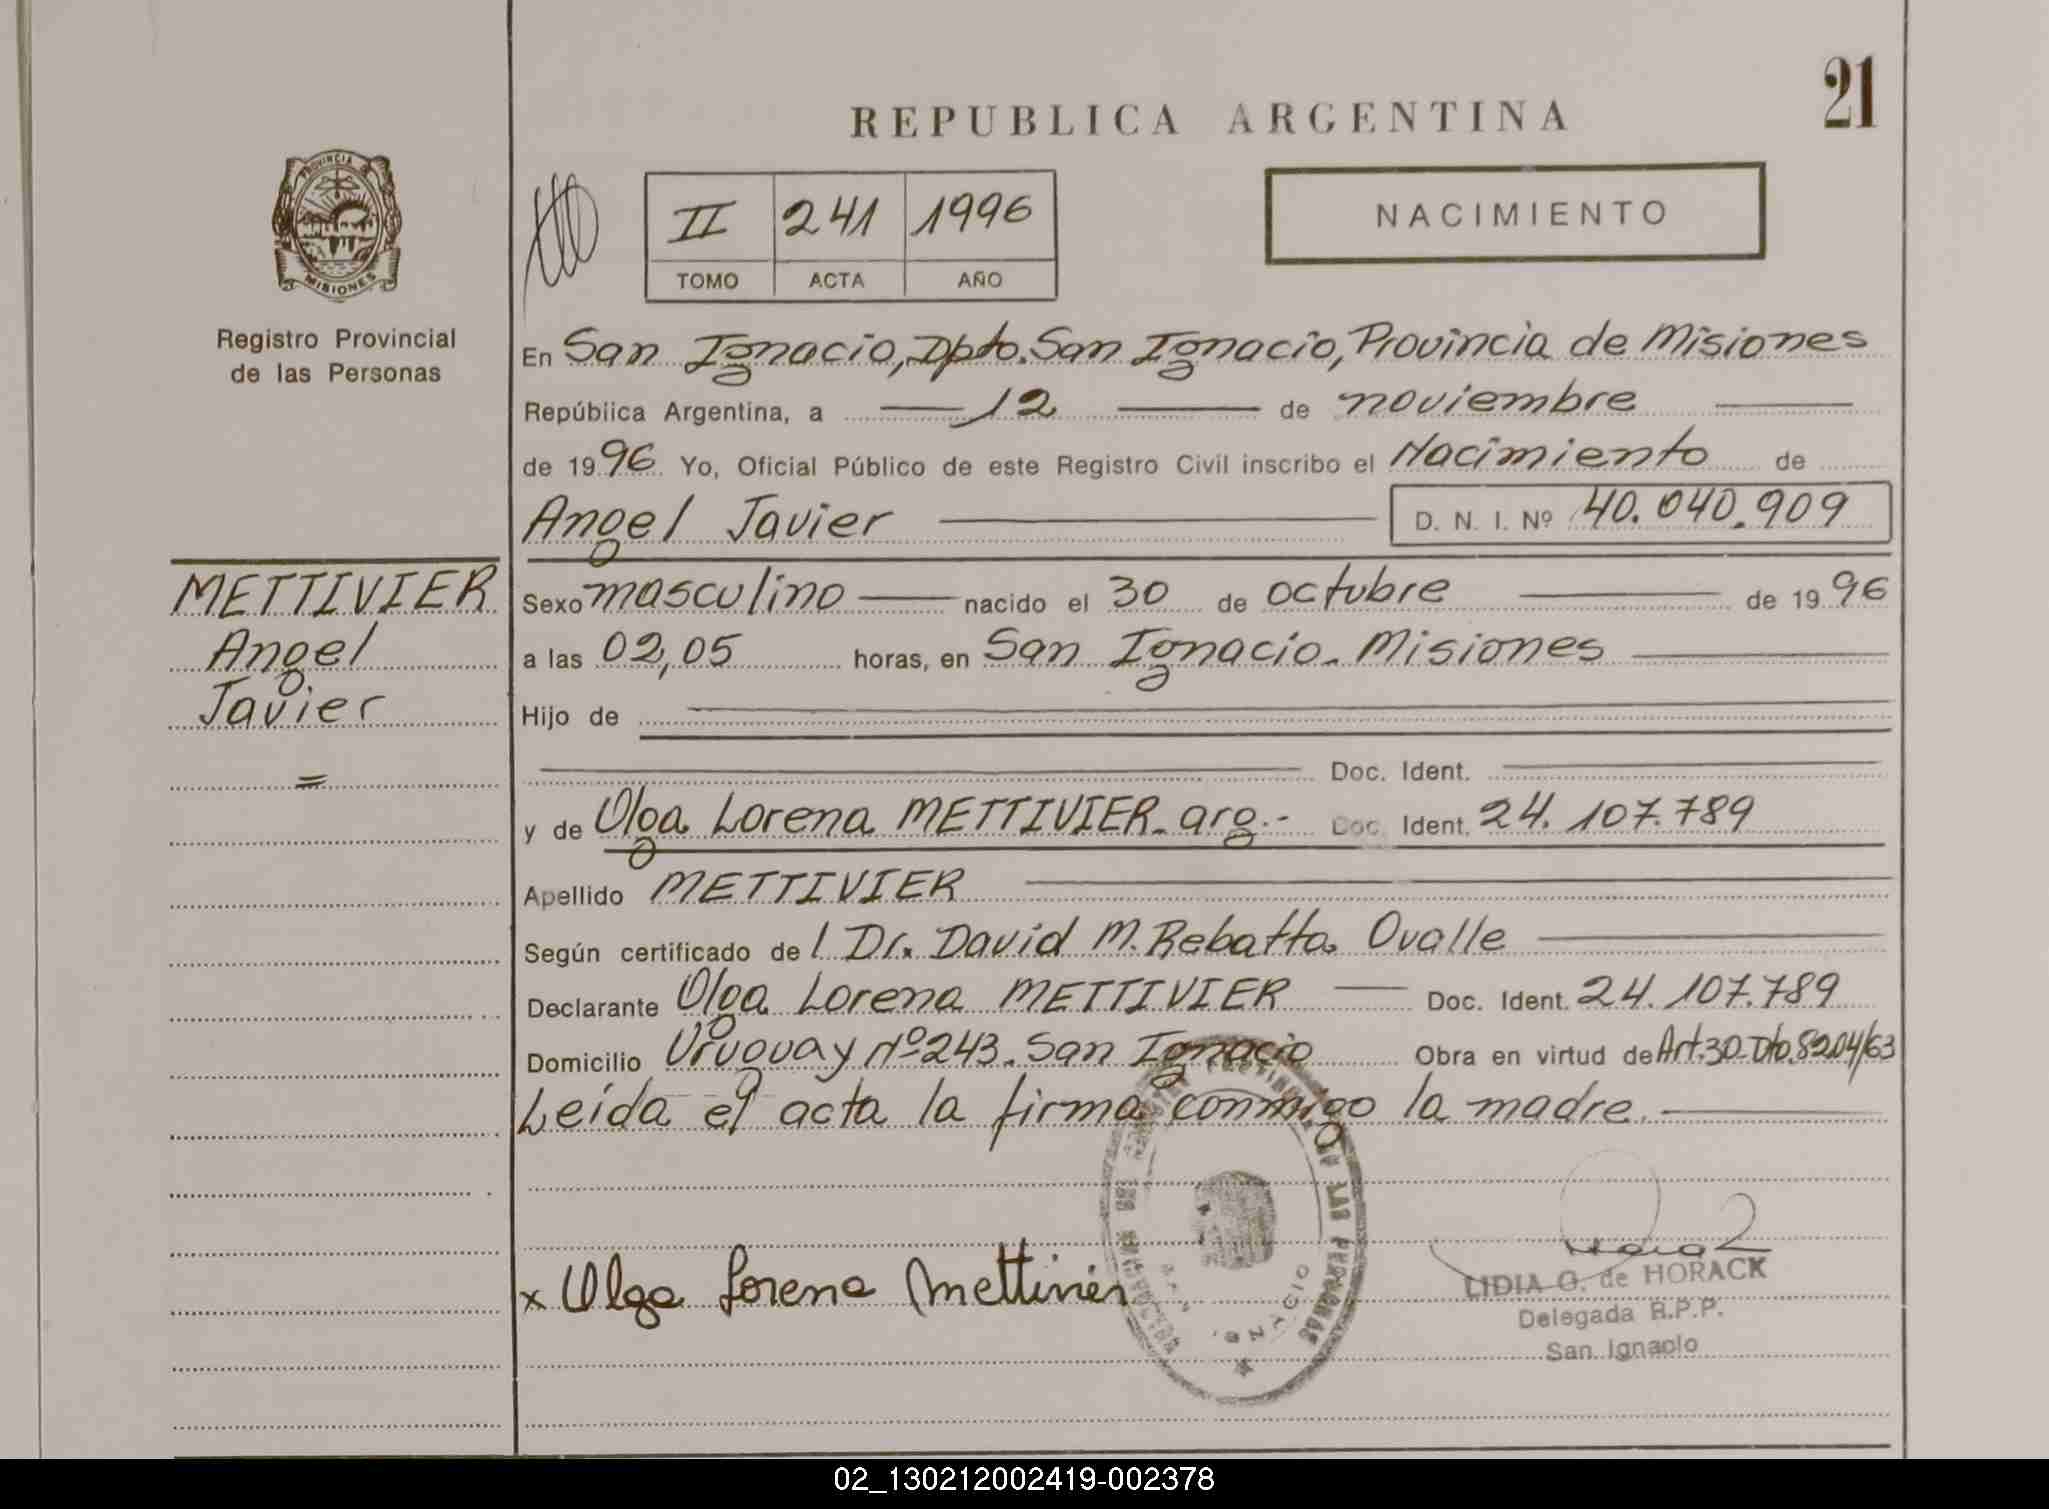 REPUBLICA ARGENTINA
21
PROVINCIA
MISIONES
Registro Provincial
de las Personas
II 241 1996
TOMO ACTA AÑO
NACIMIENTO
En San Ignacio, Dpto. San Ignacio, Provincia de Misiones
República Argentina, a 12 de noviembre
de 1996 Yo, Oficial Público de este Registro Civil inscribo el Nacimiento de
Angel Javier D. N. I. Nº 40.040.909
METTIVIER
Angel
Javier
Sexo masculino nacido el 30 de octubre de 1996
a las 02,05 horas, en San Ignacio. Misiones
Hijo de
Doc. Ident.
y de Olga Lorena METTIVIER. arg.- Doc. Ident. 24.107.789
Apellido METTIVIER
Según certificado de l Dr. David M. Rebatta Ovalle
Declarante Olga Lorena METTIVIER Doc. Ident. 24.107.789
Domicilio Uruguay Nº 243. San Ignacio Obra en virtud de Art. 30 Dto. 8204/63
Leída el acta la firma conmigo la madre.
x Olga Lorena Mettivier
LIDIA G. de HORACK
Delegada R.P.P.
San Ignacio
02_130212002419-002378